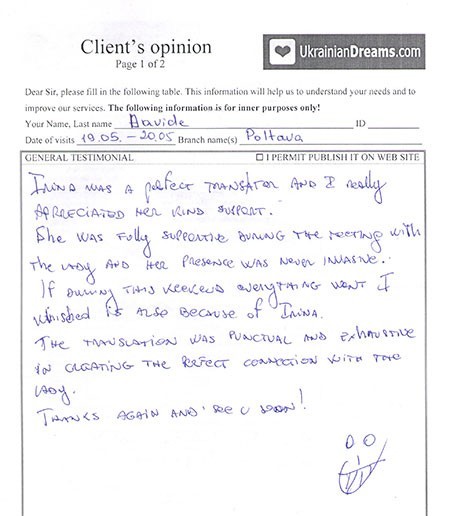 Client's opinion
Page 1 of 2
UkrainianDreams.com
Dear Sir, please fill in the following table. This information will help us to understand your needs and to
improve our services. The following information is for inner purposes only!
Your Name, Last name Davide ID
Date of visits 19.05. - 20.05 Branch name(s) Poltava
GENERAL TESTIMONIAL ☐ I PERMIT PUBLISH IT ON WEB SITE
IRINA WAS A perfect TRANSLATOR AND I really
APPRECIATED HER KIND SUPPORT.
She WAS FULLY SUPPORTIVE DURING THE MEETING WITH
THE LADY AND HER PRESENCE WAS NEVER INVASIVE.
If DURING THIS WEEKEND EVERYTHING WENT I
WHISHED IS ALSO BECAUSE OF IRINA.
THE TRANSLATION WAS PUNCTUAL AND EXHAUSTIVE
IN CREATING THE PERFECT CONNECTION WITH THE
LADY.
THANKS AGAIN AND SEE U SOON!